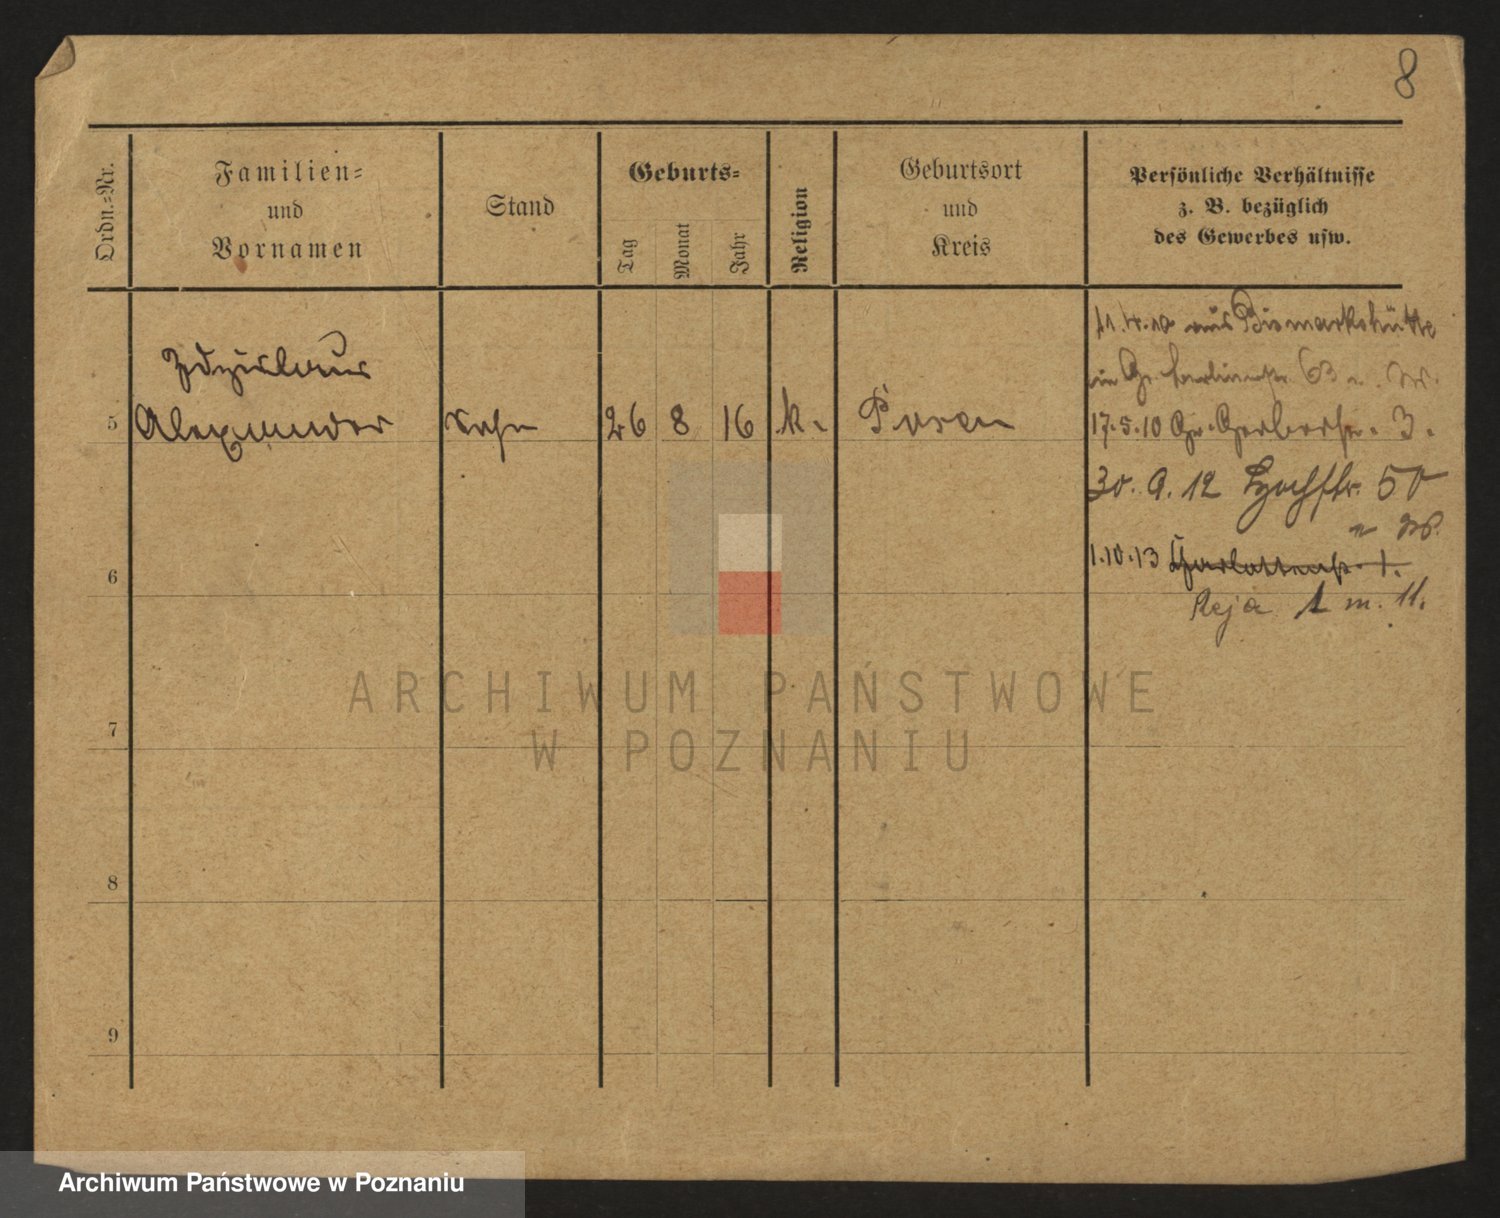 8
Ordn.=Nr.
Familien=
und
Vornamen
Stand
Geburts=
Tag
Monat
Jahr
Religion
Geburtsort
und
Kreis
Persönliche Verhältnisse
z. B. bezüglich
des Gewerbes usw.
11.4.10 aus Bismarkshütte
in Gr. Berlinerstr. 63 n. W.
Zdzislaus
5 Alexander Sohn 26 8 16 k. Posen
17.5.10 Gr. Gerberstr. 3.
30. 9. 12 Hochstr. 50
1.10.13 Charlottenstr. 1.
Reja 1 m. 11.
6
7
8
9
ARCHIWUM PAŃSTWOWE
W POZNANIU
Archiwum Państwowe w Poznaniu